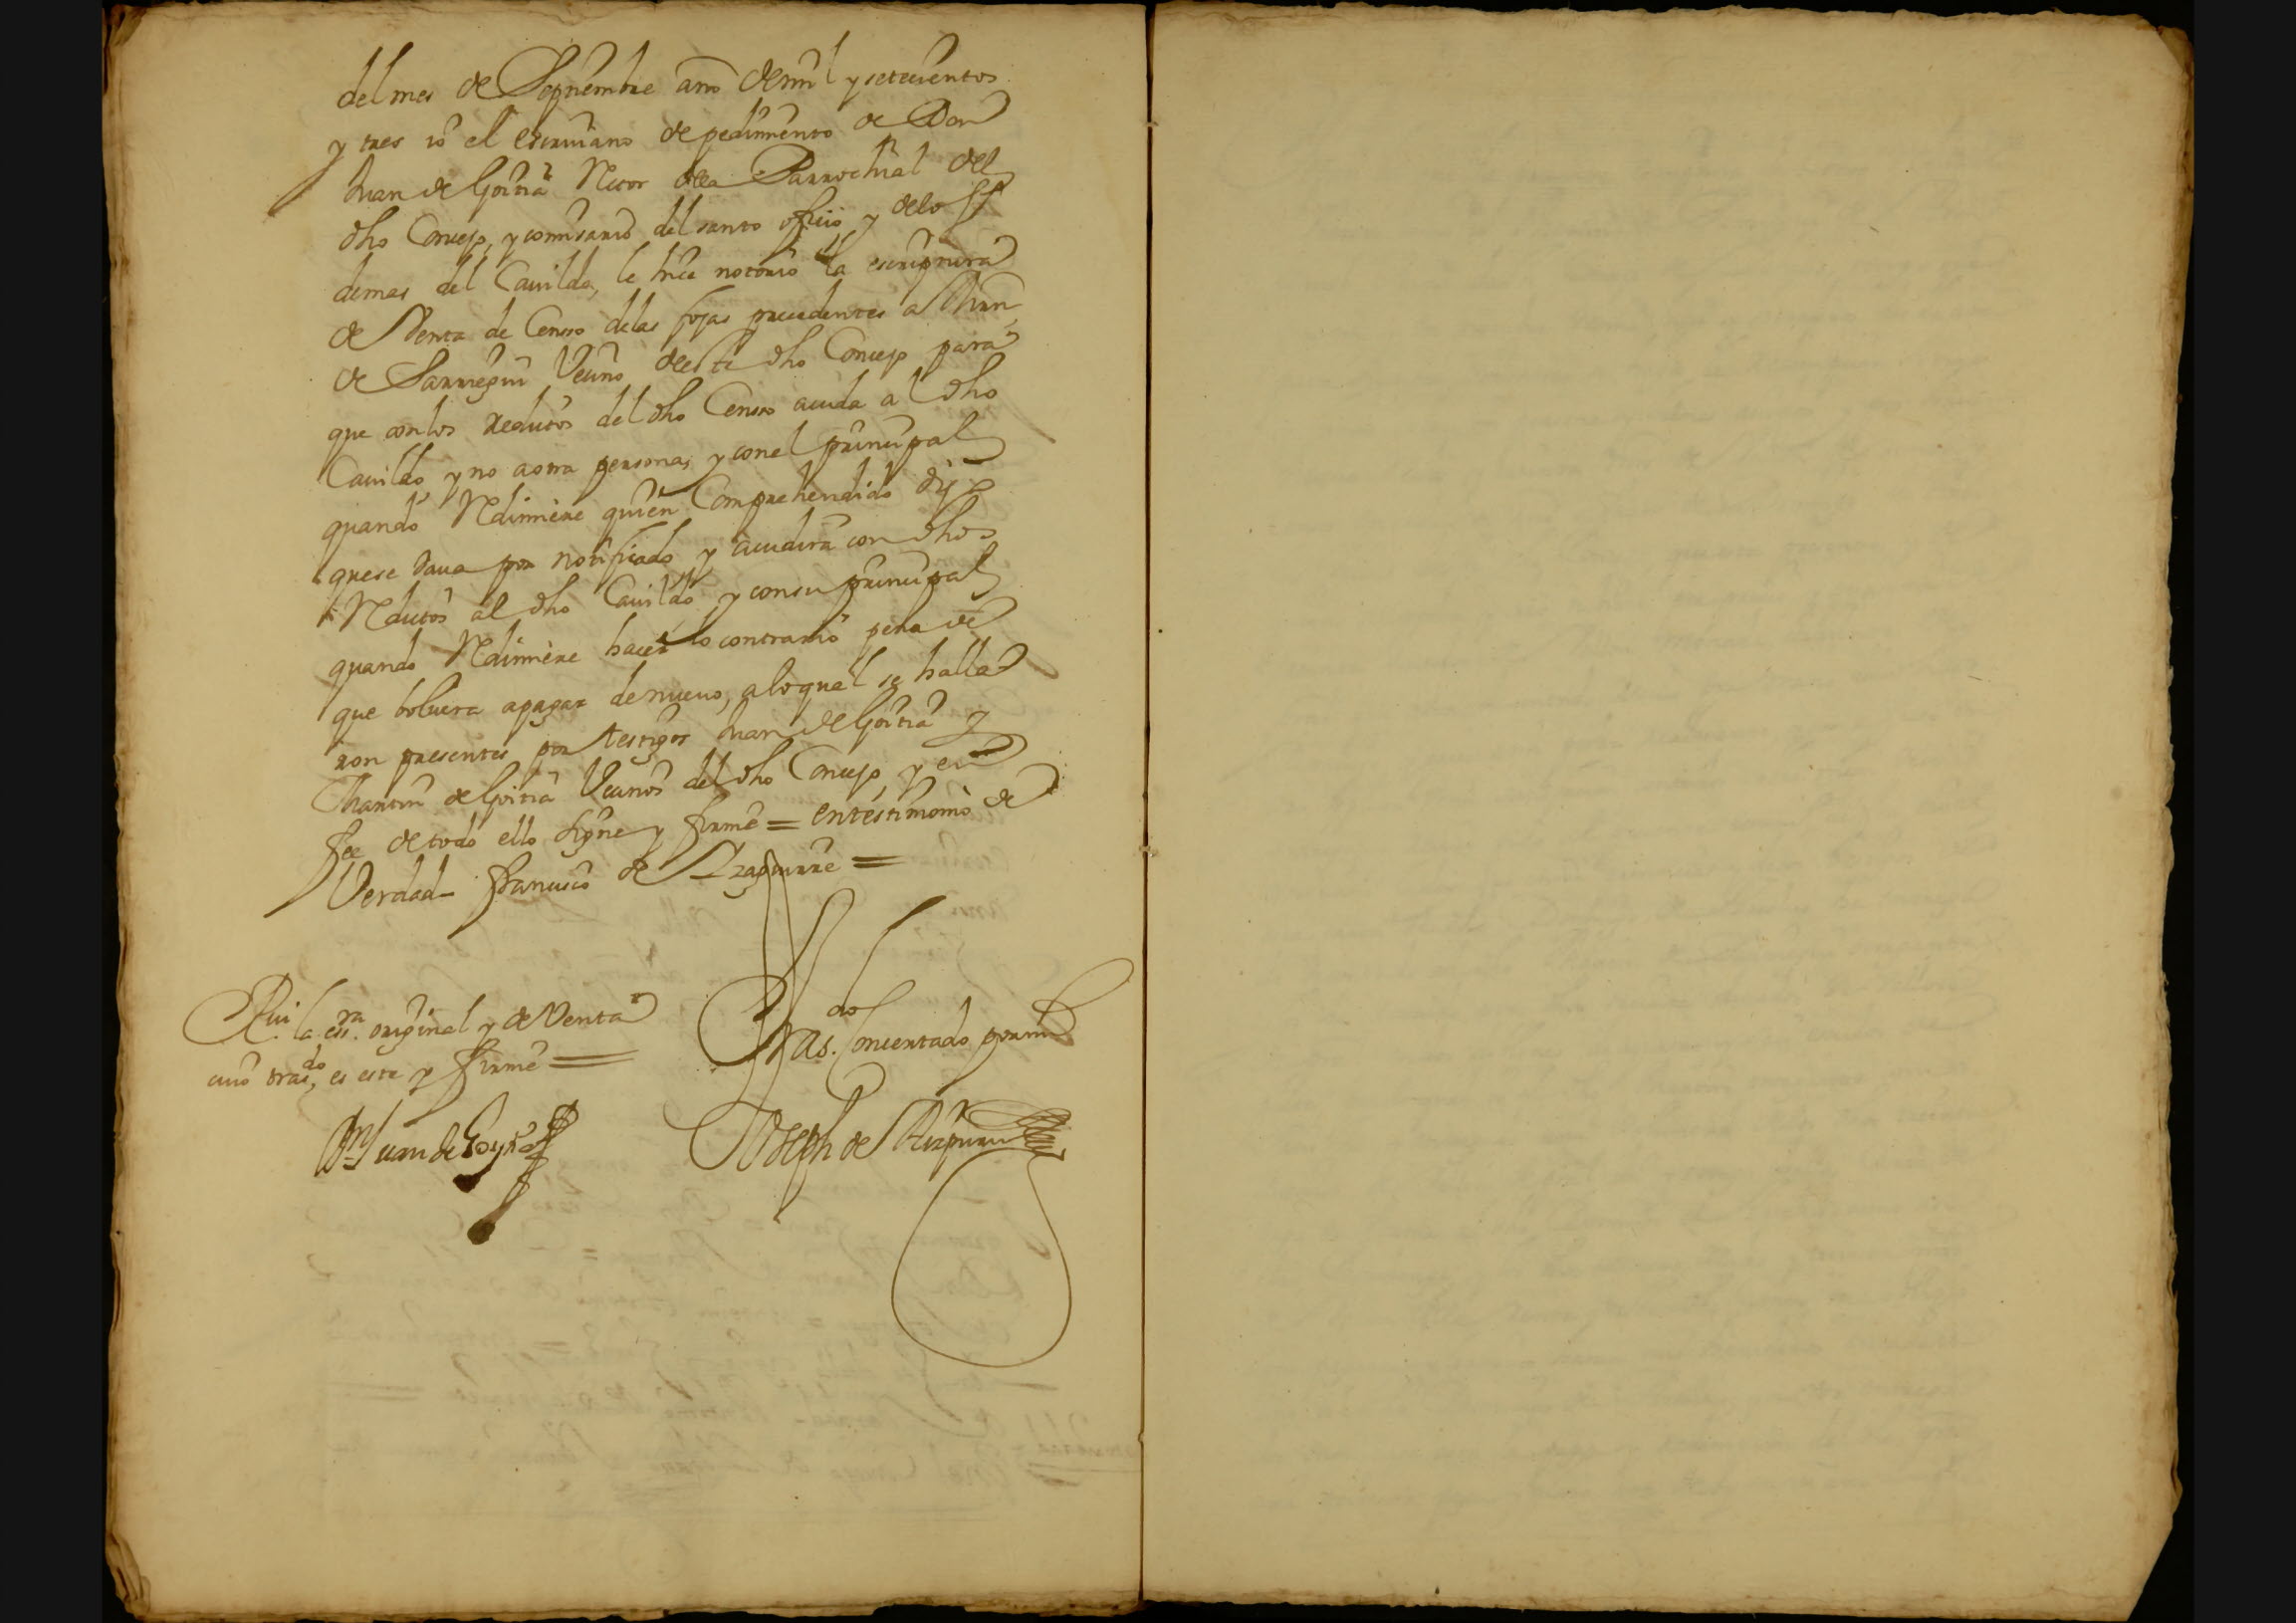 del mes de Septiembre año de mil y setecientos
y tres io el escriuano de pedimiento de Don
Juan de Goitia Retor dela Parrochial del
dho Concejo, y comisario del santo oficio, y delos
demas del Cauildo, le hice notorio la escriptura
de Venta de Censso delas fojas precedentes a Juan
de Sarriegui Vecino deeste dho Concejo para
que con los reditos del dho Censso acuda al dho
Cauildo y no aotra persona, y conel principal
quando Redimiere quien Comprehendido dijo
quese daua por notificado y acudira con dhos
Reditos al dho Cauildo y consu principal
quando Redimiere hacer lo contrario pena de
que boluera apagar denueuo, aloqual se halla
ron presentes por testigos Juan de Goitia y
Martin de Goitia Vecinos del dho Concejo, y en
fee detodo ello signe y firme = entestimonio de
Verdad - Francisco de Yzaguirre =
R.ui la ess.ra original y de Venta
cuio tras.do, es este y firme =
Dn Juan de Goytia
Tras.do Concertado por mi
Joseph de Aizpuru